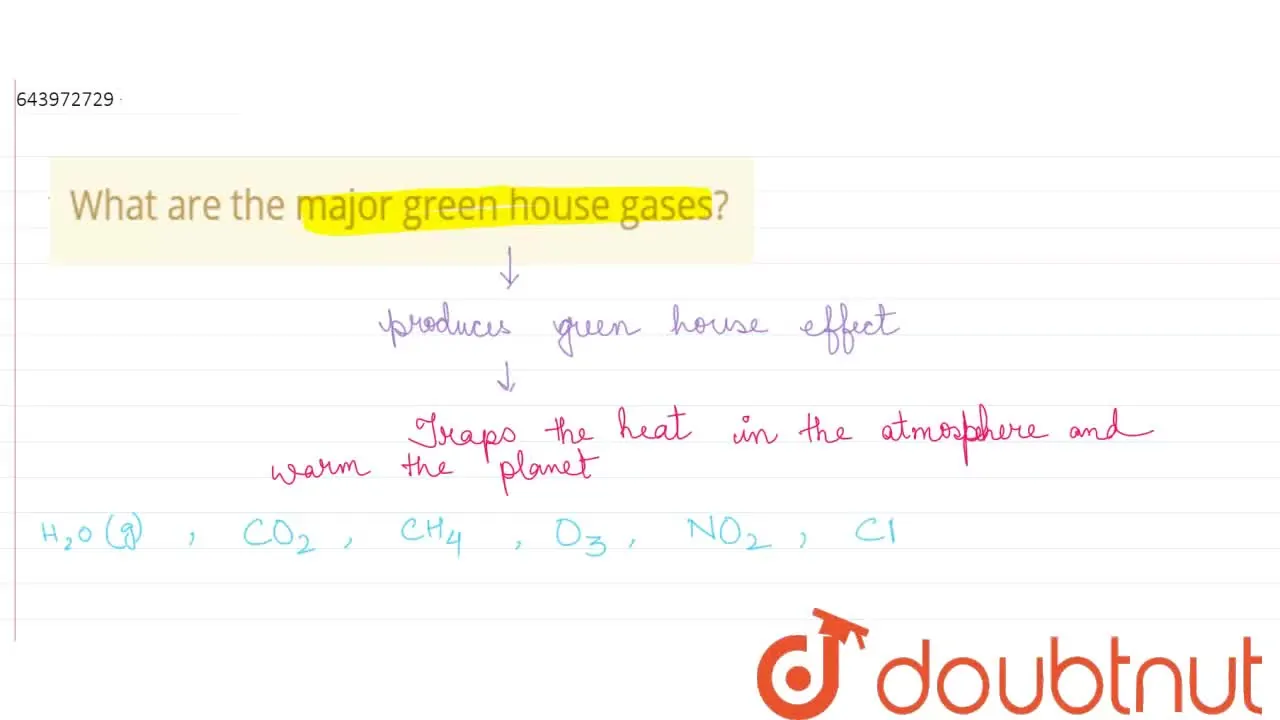 643972729
What are the major green house gases?
↓
produces green house effect
↓
Traps the heat in the atmosphere and
warm the planet
H₂O (g) , CO₂ , CH₄ , O₃ , NO₂ , Cl
doubtnut